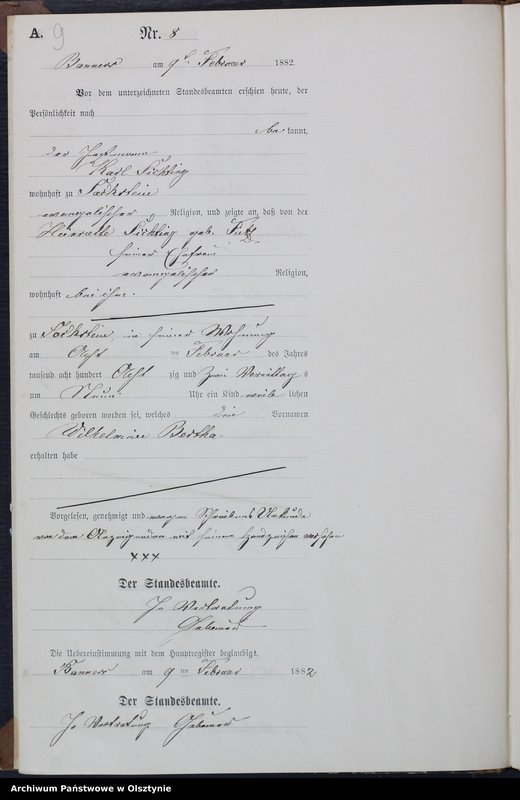 A. 9 Nr. 8
am 9 Februar 1882.
Vor dem unterzeichneten Standesbeamten erschien heute, der
Persönlichkeit nach
be kannt,
der
Karl
wohnhaft zu
evangelischer Religion, und zeigte an, daß von der
geb.
seiner Ehefrau
evangelischer Religion,
wohnhaft bei ihm.
zu in seiner Wohnung
am Acht ten Februar des Jahres
tausend acht hundert Acht zig und zwei Vormittag s
um Neun Uhr ein Kind weib lichen
Geschlechts geboren worden sei, welches die Vornamen
Wilhelmine Bertha
erhalten habe
Vorgelesen, genehmigt und wegen Schreibens Unkunde
von dem Anzeigenden mit seinem Handzeichen versehen
xxx
Der Standesbeamte.
In Vertretung
Die Uebereinstimmung mit dem Hauptregister beglaubigt.
am 9 ten Februar 1882
Der Standesbeamte.
In Vertretung
Archiwum Państwowe w Olsztynie